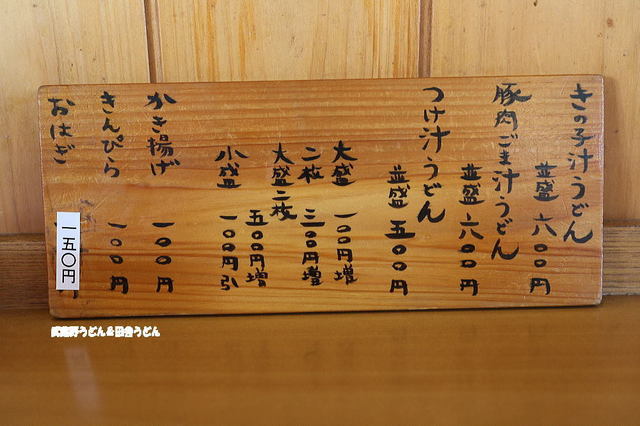 きの子汁うどん
並盛 六〇〇円
豚肉ごま汁うどん
並盛 六〇〇円
つけ汁うどん
並盛 五〇〇円
大盛 一〇〇円増
二枚 三〇〇円増
大盛二枚 五〇〇円増
小盛 一〇〇円引
かき揚げ 一〇〇円
きんぴら 一〇〇円
おはぎ 一五〇円
武蔵野うどん&田舎うどん